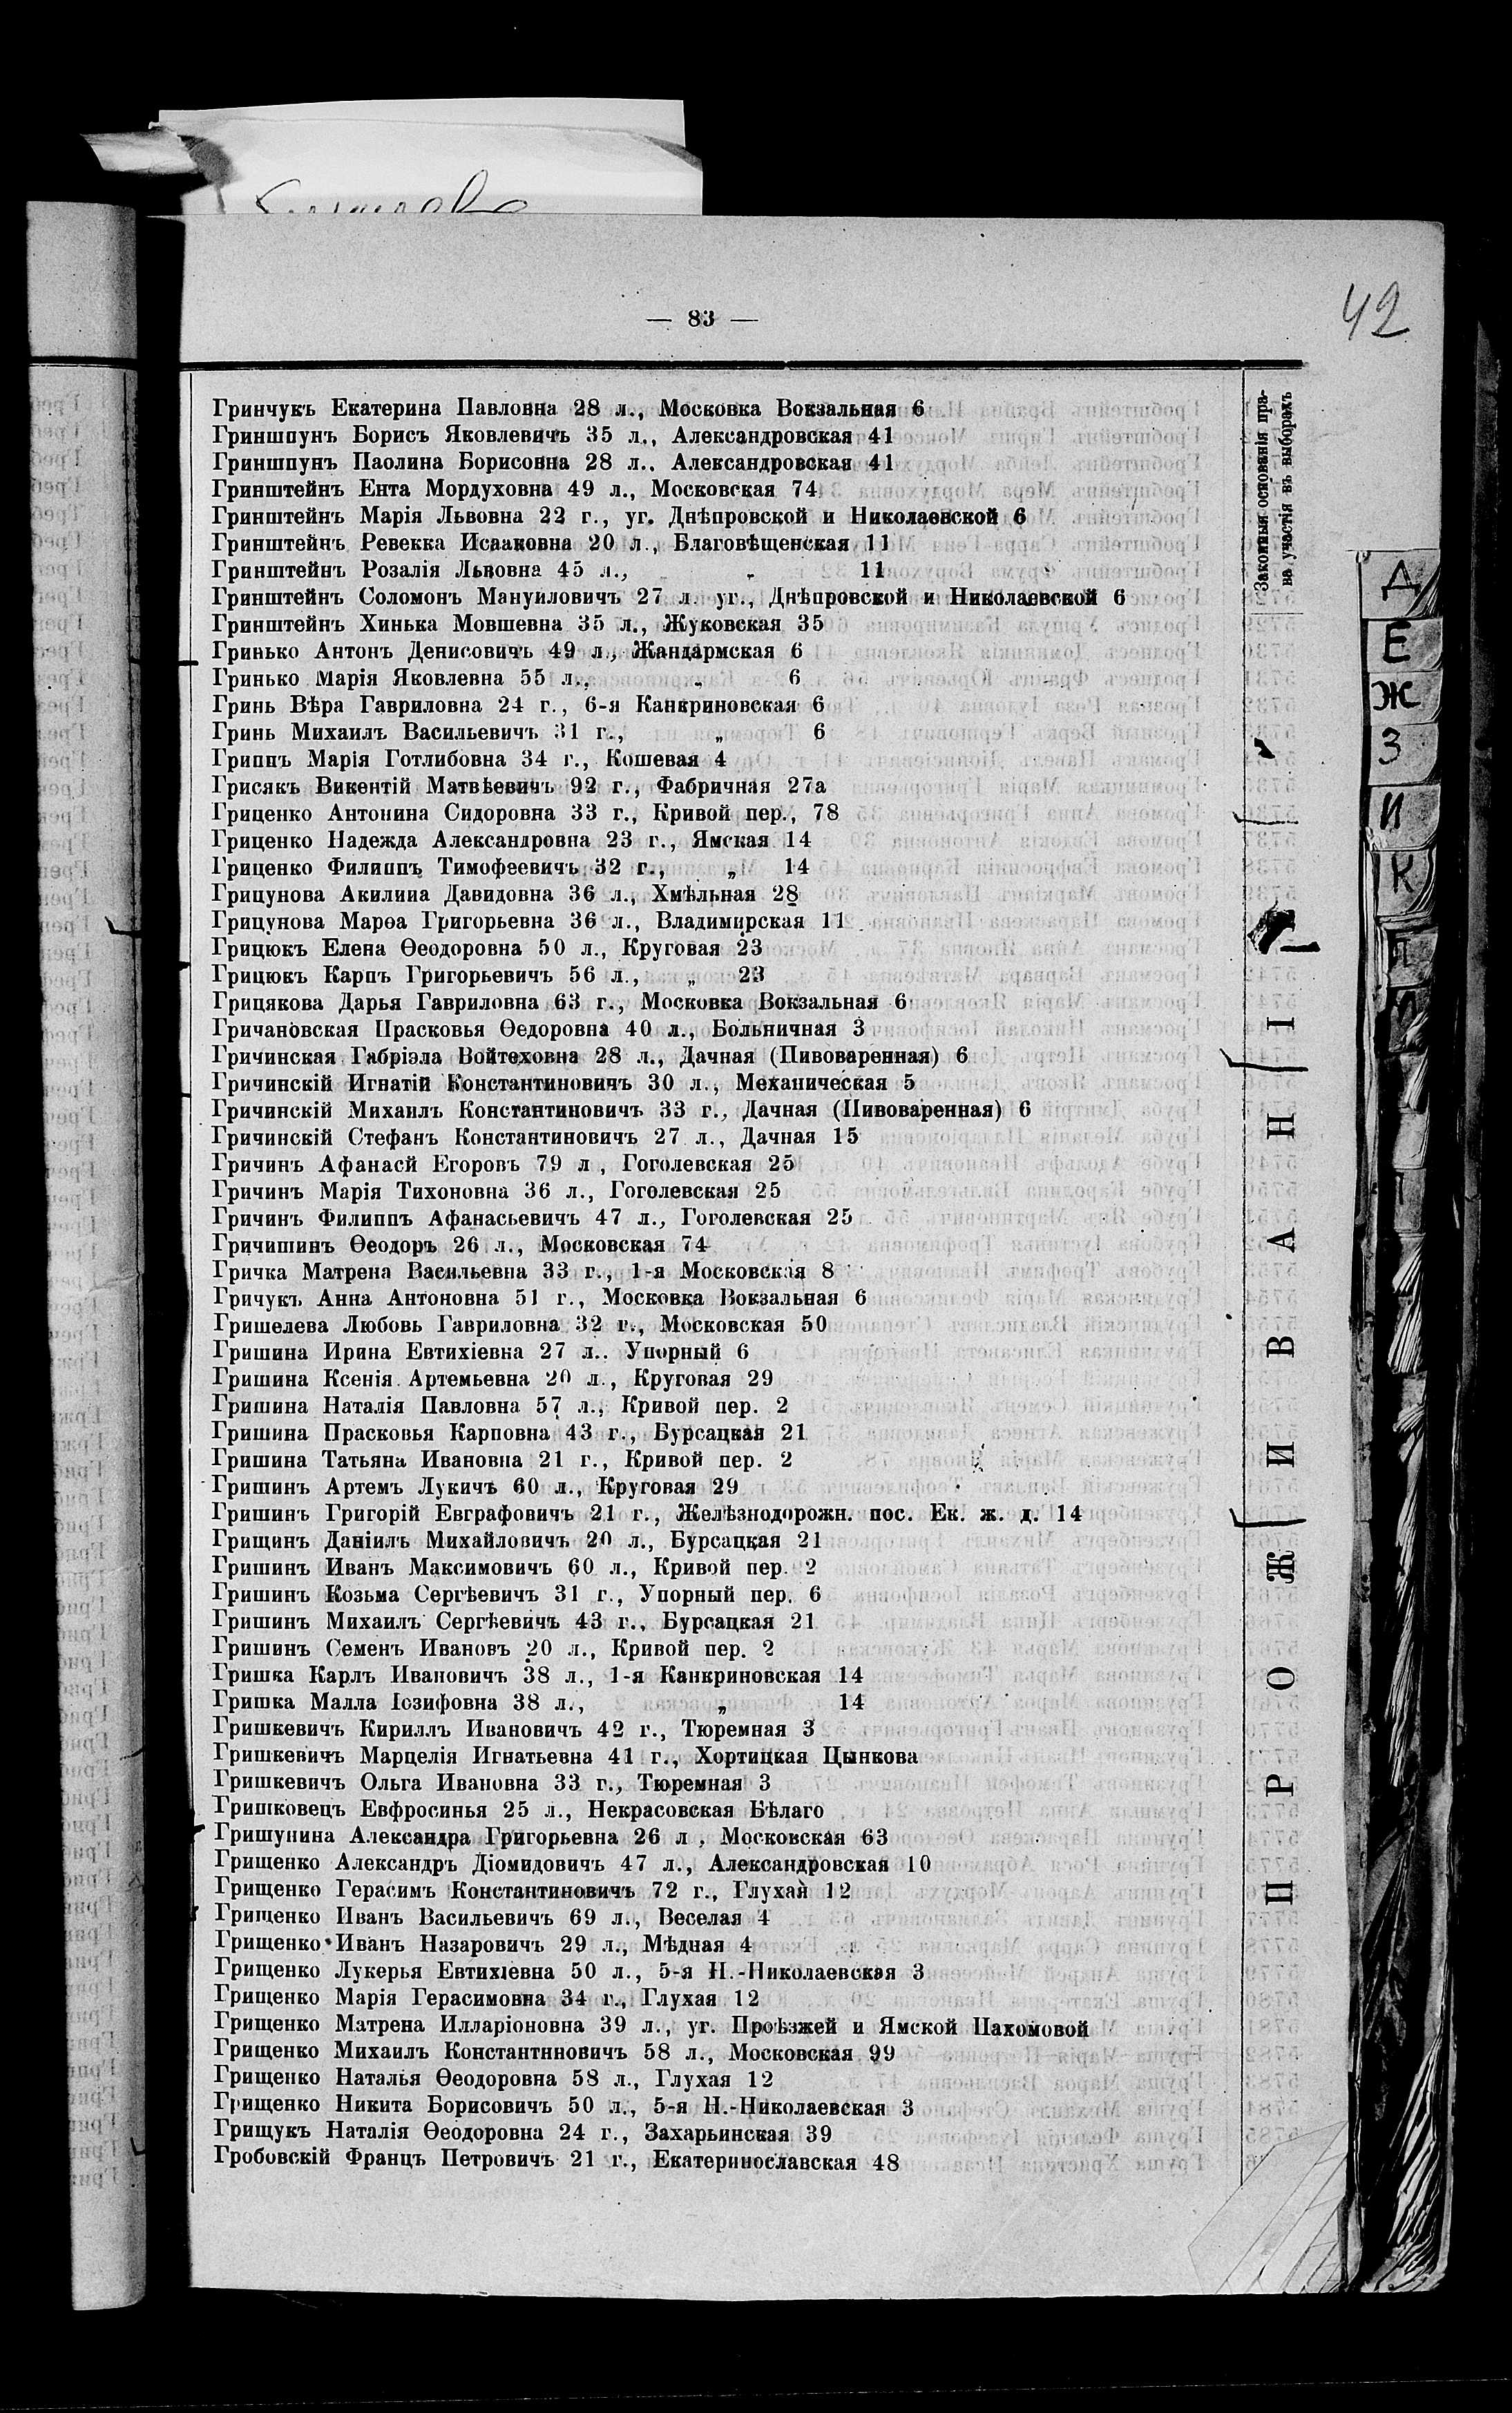 — 83 —
42
Законныя основанія пра-
ва участія въ выборахъ
Гринчукъ Екатерина Павловна 28 л., Московка Вокзальная 6
Гриншпунъ Борисъ Яковлевичъ 35 л., Александровская 41
Гриншпунъ Паолина Борисовна 28 л.. Александровская 41
Гринштейнъ Ента Мордуховна 49 л., Московская 74
Гринштейнъ Марія Львовна 22 г., уг. Днѣпровской и Николаевской 6
Гринштейнъ Ревекка Исааковна 20 л., Благовѣщенская 11
Гринштейнъ Розалія Львовна 45 л., „ 11
Гринштейнъ Соломонъ Мануиловичъ 27 л. уг., Днѣпровской и Николаевской 6
Гринштейнъ Хинька Мовшевна 35 л., Жуковская 35
Гринько Антонъ Денисовичъ 49 л., Жандармская 6
Гринько Марія Яковлевна 55 л., „ 6
Гринь Вѣра Гавриловна 24 г., 6-я Канкриновская 6
Гринь Михаилъ Васильевичъ 31 г., „ 6
Гриппъ Марія Готлибовна 34 г., Кошевая 4
Грисякъ Викентій Матвѣевичъ 92 г., Фабричная 27а
Гриценко Антонина Сидоровна 33 г., Кривой пер., 78
Гриценко Надежда Александровна 23 г., Ямская 14
Гриценко Филиппъ Тимофеевичъ 32 г., „ 14
Грицунова Акилина Давидовна 36 л., Хмѣльная 28
Грицунова Марѳа Григорьевна 36 л., Владимирская 11
Грицюкъ Елена Ѳеодоровна 50 л., Круговая 23
Грицюкъ Карпъ Григорьевичъ 56 л., „ 23
Грицякова Дарья Гавриловна 63 г., Московка Вокзальная 6
Гричановская Прасковья Ѳедоровна 40 л., Больничная 3
Гричинская Габріэла Войтеховна 28 л., Дачная (Пивоваренная) 6
Гричинскій Игнатій Константиновичъ 30 л., Механическая 5
Гричинскій Михаилъ Константиновичъ 33 г., Дачная (Пивоваренная) 6
Гричинскій Стефанъ Константиновичъ 27 л., Дачная 15
Гричинъ Афанасй Егоровъ 79 л , Гоголевская 25
Гричинъ Марія Тихоновна 36 л., Гоголевская 25
Гричинъ Филиппъ Афанасьевичъ 47 л., Гоголевская 25
Гричишинъ Ѳеодоръ 26 л., Московская 74
Гричка Матрена Васильевна 33 г., 1-я Московская 8
Гричукъ Анна Антоновна 51 г., Московка Вокзальная 6
Гришелева Любовь Гавриловна 32 г., Московская 50
Гришина Ирина Евтихіевна 27 л.. Упорный 6
Гришина Ксенія Артемьевна 20 л., Круговая 29
Гришина Наталія Павловна 57 л., Кривой пер. 2
Гришина Прасковья Карповна 43 г., Бурсацкая 21
Гришина Татьяна Ивановна 21 г., Кривой пер. 2
Гришинъ Артемъ Лукичъ 60 л., Круговая 29
Гришинъ Григорій Евграфовичъ 21 г., Желѣзнодорожн. пос. Ек. ж. д. 14
Грищинъ Даніилъ Михайловичъ 20 л., Бурсацкая 21
Гришинъ Иванъ Максимовичъ 60 л., Кривой пер. 2
Гришинъ Козьма Сергѣевичъ 31 г., Упорный пер. 6
Гришинъ Михаилъ Сергѣевичъ 43 г., Бурсацкая 21
Гришинъ Семенъ Ивановъ 20 л., Кривой пер. 2
Гришка Карлъ Ивановичъ 38 л., 1-я Канкриновская 14
Гришка Малла Іозифовна 38 л., „ 14
Гришкевичъ Кириллъ Ивановичъ 42 г., Тюремная 3
Гришкевичъ Марцелія Игнатьевна 41 г., Хортицкая Цынкова
Гришкевичъ Ольга Ивановна 33 г., Тюремная 3
Гришковецъ Евфросинья 25 л., Некрасовская Бѣлаго
Гришунина Александра Григорьевна 26 л , Московская 63
Грищенко Александръ Діомидовичъ 47 л., Александровская 10
Грищенко Герасимъ Константиновичъ 72 г., Глухая 12
Грищенко Иванъ Васильевичъ 69 л., Веселая 4
Грищенко Иванъ Назаровичъ 29 л., Мѣдная 4
Грищенко Лукерья Евтихіевна 50 л., 5-я Н.-Николаевская 3
Грищенко Марія Герасимовна 34 г., Глухая 12
Грищенко Матрена Илларіоновна 39 л., уг. Проѣзжей и Ямской Пахомовой
Грищенко Михаилъ Константиновичъ 58 л., Московская 99
Грищенко Наталья Ѳеодоровна 58 л., Глухая 12
Грищенко Никита Борисовичъ 50 л., 5-я Н.-Николаевская 3
Грищукъ Наталія Ѳеодоровна 24 г., Захарьинская 39
Гробовскій Францъ Петровичъ 21 г., Екатеринославская 48
ПРОЖИВАНІЕ
Д
Е
Ж
З
И
К